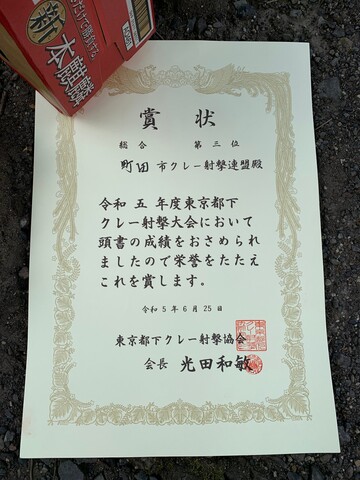 新
本麒麟
賞状
総合 第三位
町田市クレー射撃連盟殿
令和五年度東京都下
クレー射撃大会において
頭書の成績をおさめられ
ましたので栄誉をたたえ
これを賞します。
令和5年6月25日
東京都下クレー射撃協会
会長 光田和敏